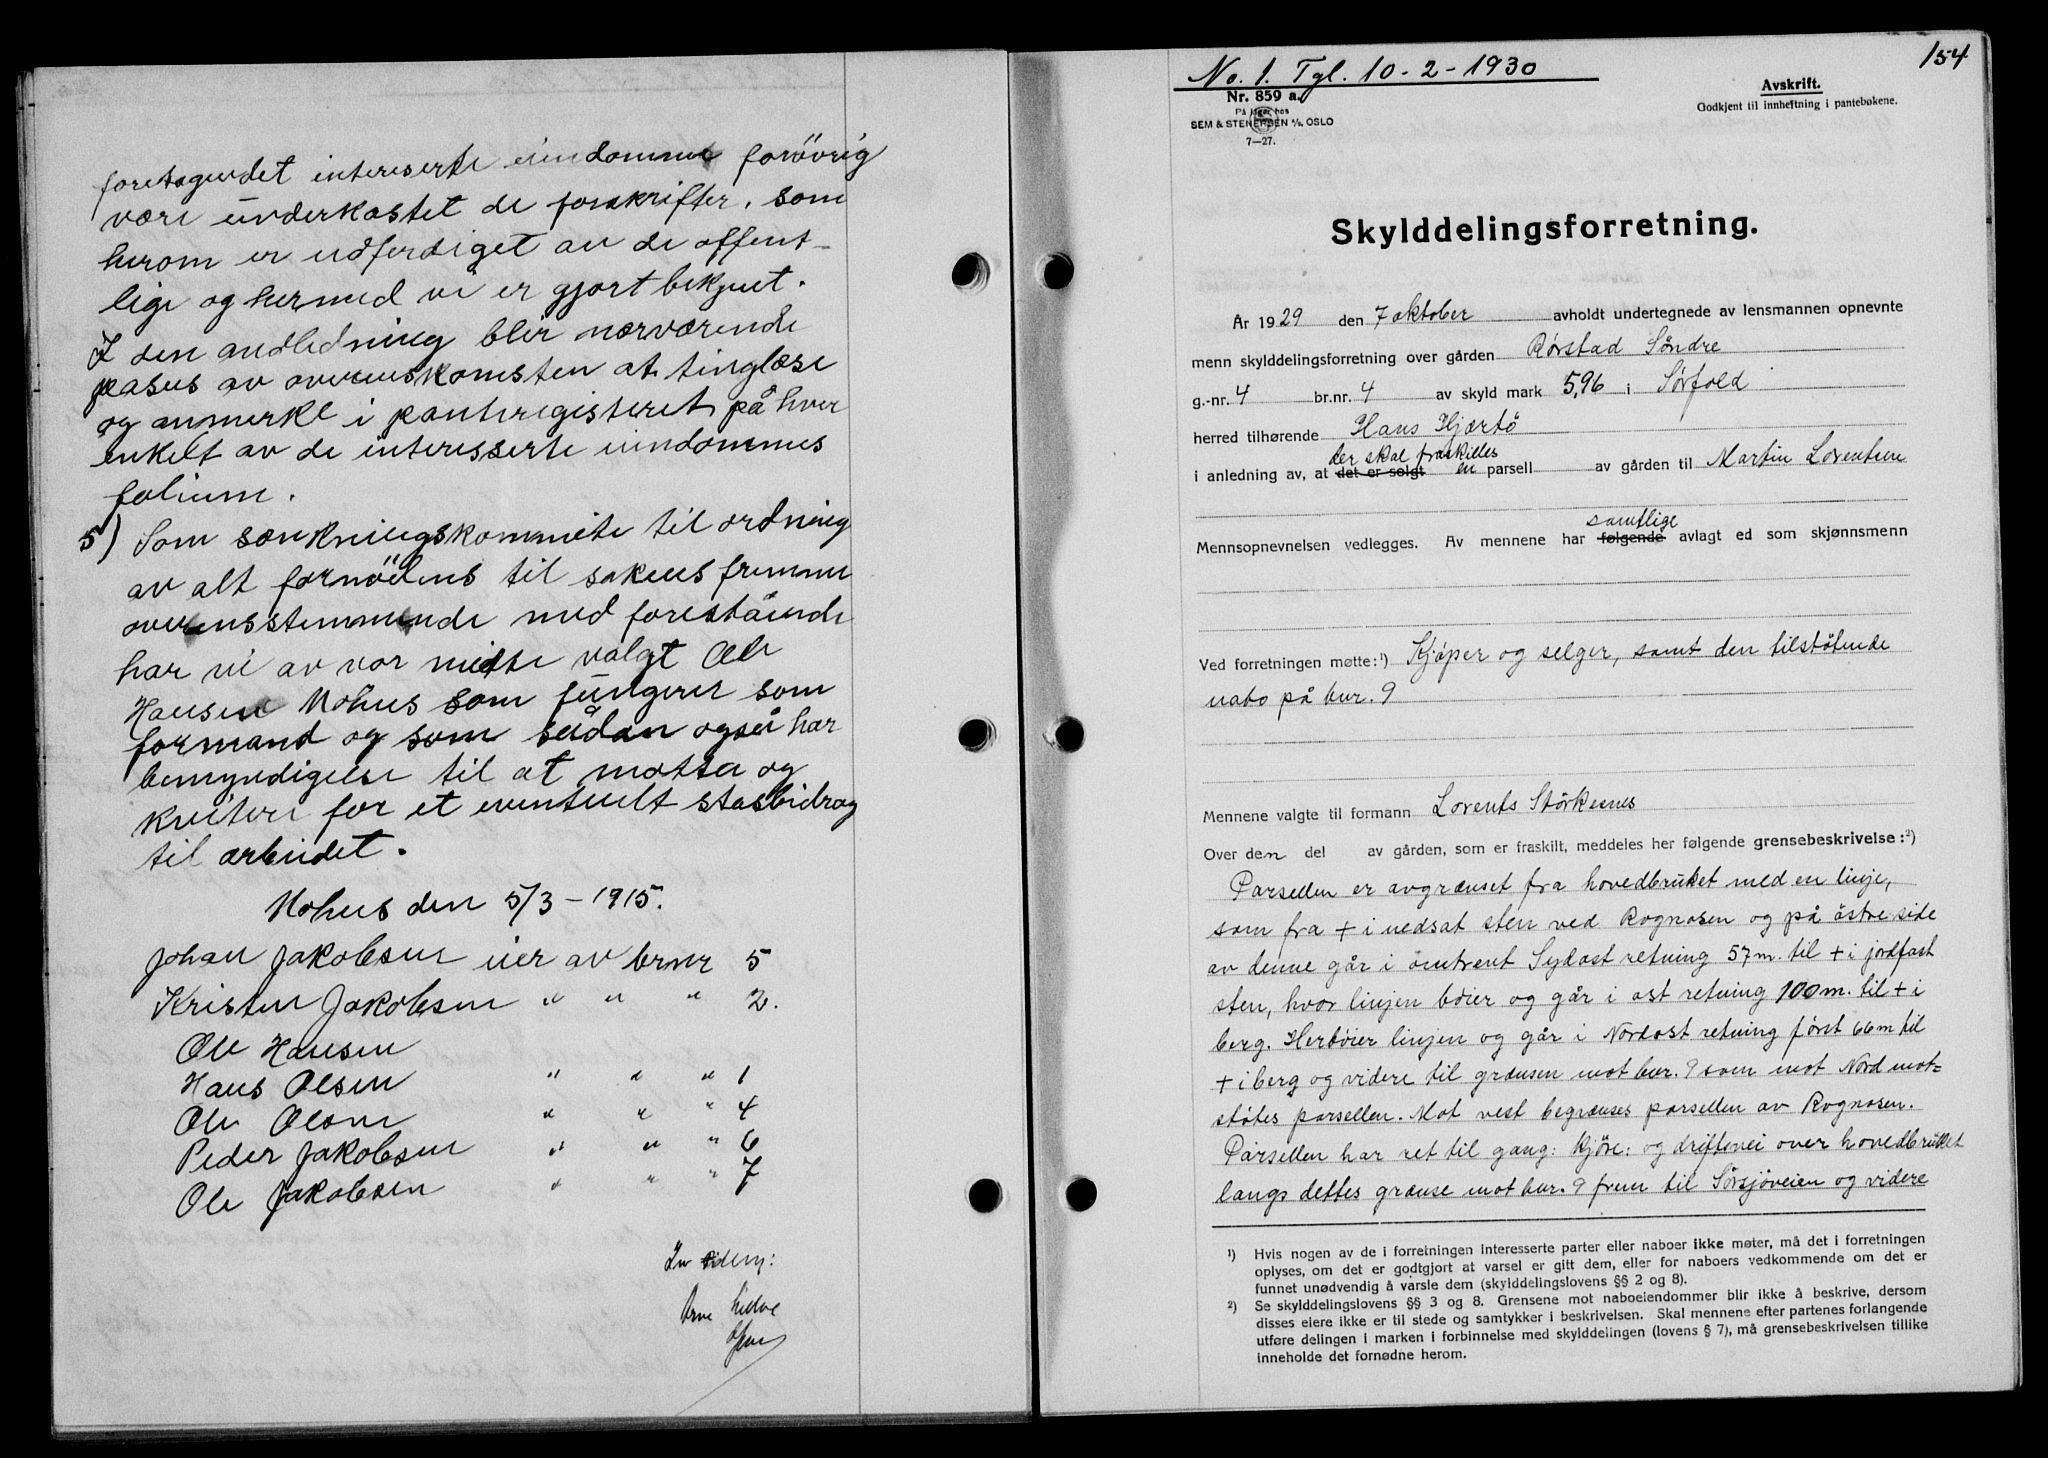 foretagendet intereserte eiendomme forövrig
være underkastet de forskrifter, som
herom er udferdiget av de offent-
lige og hermed vi er gjort bekjent.
I den andledning blir nærværende
pasus av overenskomsten at tinglæse
og anmerke i panteregisteret på hver
enkelt av de interesserte eiendommes
folium.
5) Som sænkningskommite til ordning
av alt fornödens til sakens fremme
overensstemmende med forestående
har vi av vor midte valgt Ole
Hansen Mohus som fungerer som
formand og som sådan også har
bemyndigelse til at motta og
kvitere for et eventuelt statsbidrag
til arbeidet.
Mohus den 5/3 - 1915.
Johan Jakobsen eier av brnr 5
Kristen Jakobsen " " " 2.
Ole Hansen
Hans Olsen " " " 1
Ole Olsen " " " 4
Peder Jakobsen " " " 6
Ole Jakobsen " " " 7
Arne
154
No. 1. Tgl. 10-2-1930
Nr. 859 a.
På lager hos
SEM & STENERSEN A/S, OSLO
7—27.
Avskrift.
Godkjent til innheftning i pantebøkene.
Skylddelingsforretning.
År 1929 den 7 oktober avholdt undertegnede av lensmannen opnevnte
menn skylddelingsforretning over gården Rørstad Söndre
g.-nr. 4 br.nr. 4 av skyld mark 5,96 i Sørfold
herred tilhørende Hans Hjærtö
der skal fraskilles
i anledning av, at det er solgt en parsell av gården til Martin Lorentsen
samtlige
Mennsopnevnelsen vedlegges. Av mennene har følgende avlagt ed som skjønnsmenn
Ved forretningen møtte:¹) Kjøper og selger, samt den tilstötende
nabo på bnr. 9
Mennene valgte til formann Lorents Störkesnes
Over den del av gården, som er fraskilt, meddeles her følgende grensebeskrivelse:²)
Parsellen er avgrænset fra hovedbruket med en linje,
som fra + i nedsat sten ved Rognosen og på östre side
av denne går i omtrent Sydost retning 57 m. til + i jordfast
sten, hvor linjen böier og går i ost retning 100 m. til + i
berg. Herböier linjen og går i Nordost retning først 66 m til
+ i berg og videre til grænsen mot bnr. 9 som mot Nord mot=
støtes parsellen. Mot vest begrænses parsellen av Rognosen.
Parsellen har ret til gang: kjöre: og driftevei over hovedbruket
langs dettes grænse mot bnr. 9 frem til Sørsjöveien og videre
¹) Hvis nogen av de i forretningen interesserte parter eller naboer ikke møter, må det i forretningen
oplyses, om det er godtgjort at varsel er gitt dem, eller for naboers vedkommende om det er
funnet unødvendig å varsle dem (skylddelingslovens §§ 2 og 8).
²) Se skylddelingslovens §§ 3 og 8. Grensene mot naboeiendommer blir ikke å beskrive, dersom
disses eiere ikke er til stede og samtykker i beskrivelsen. Skal mennene efter partenes forlangende
utføre delingen i marken i forbinnelse med skylddelingen (lovens § 7), må grensebeskrivelsen tillike
inneholde det fornødne herom.